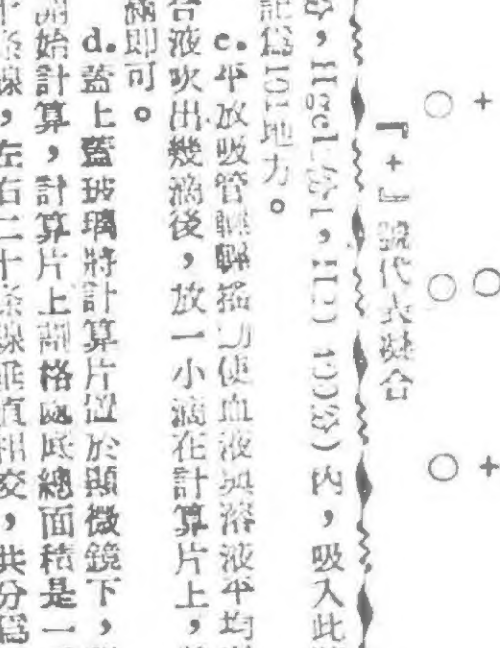 +
○
○○
○+
『+』號代表凝合
份，Hgcl 份1，H2O 100份）內，吸入此
記爲101地方。
c.平放吸管輕輕搖動使血液與溶液平均
合液吹出幾滴後，放一小滴在計算片上，
滿即可。
d.蓋上蓋玻璃將計算片置於顯微鏡下，
開始計算，計算片上劃格處底總面積是一
十条線，左右二十条線垂直相交，共分爲